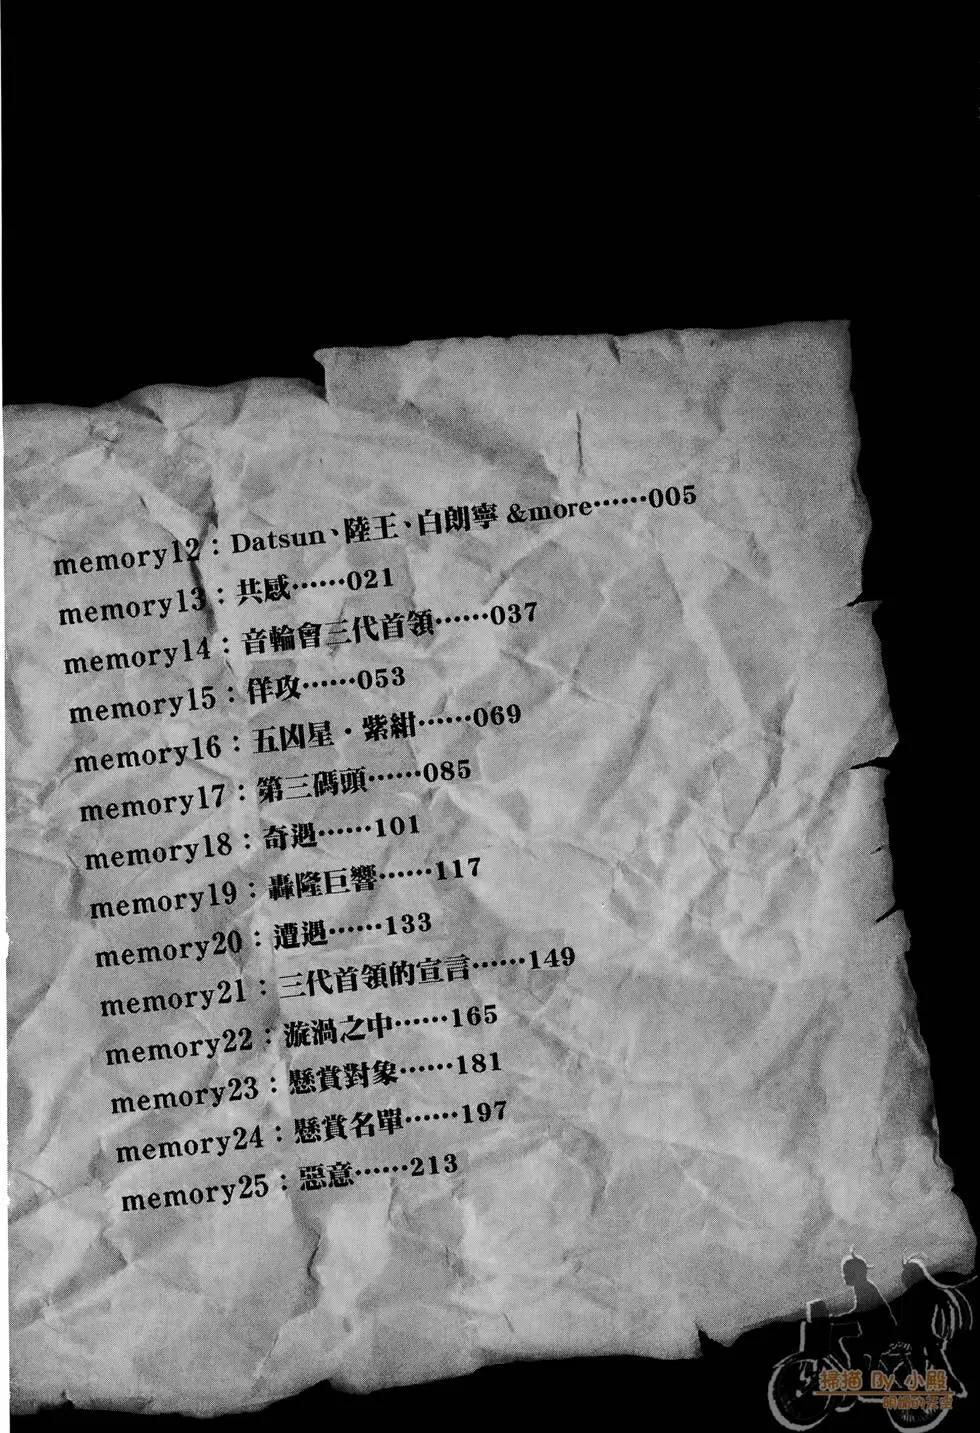 memory12：Datsun、陸王、白朗寧 &more……005
memory13：共感……021
memory14：音輪會三代首領……037
memory15：佯攻……053
memory16：五凶星・紫紺……069
memory17：第三碼頭……085
memory18：奇遇……101
memory19：轟隆巨響……117
memory20：遭遇……133
memory21：三代首領的宣言……149
memory22：漩渦之中……165
memory23：懸賞對象……181
memory24：懸賞名單……197
memory25：惡意……213
掃描 By 小殿